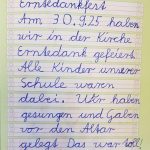 Erntedankfest
Am 30.9.25 haben
wir in der Kirche
Erntedank gefeiert.
Alle Kinder unserer
Schule waren
dabei. Wir haben
gesungen und Gaben
vor den Altar
gelegt. Das war toll,